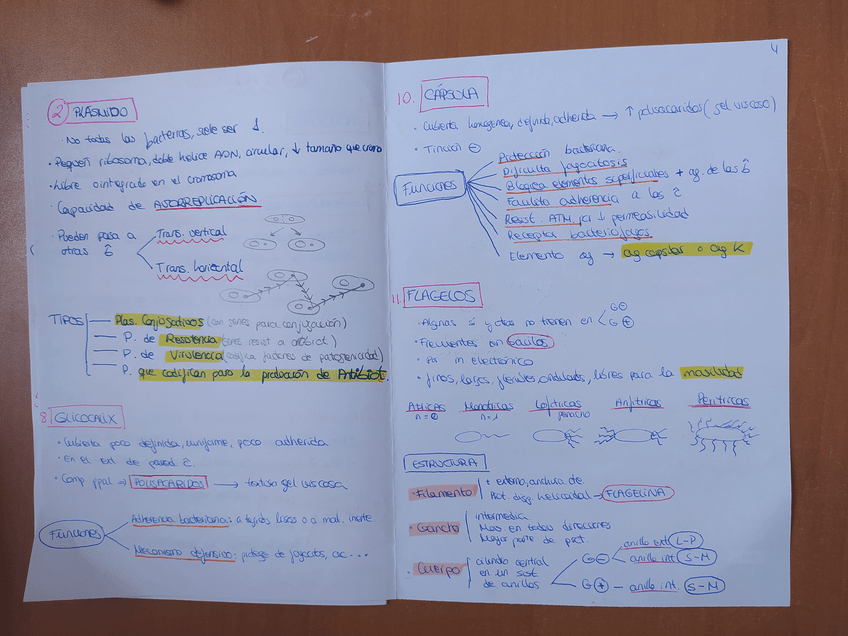 2 PLÁSMIDO
· No todas las bacterias, suele ser 1.
· Pequeñ ribosoma, doble hélice ADN, circular, ↓ tamaño que crom
· Libre o integrado en el cromosoma
· Capacidad de AUTORREPLICACIÓN
· Pueden pasar a otras b̂
Trans. vertical
Trans. horizontal
TIPOS
Plas. Conjugativos (con genes para conjugación)
P. de Resistencia (genes resist a antibiot)
P. de Virulencia (codifica factores de patogenicidad)
P. que codifican para la producción de Antibiot.
8. GLICOCALIX
· Cubierta poco definida, uniforme, poco adherida
· En el ext. de pared c̄.
· Comp ppal → POLISACARIDOS → textura gel viscosa
Funciones
Adherencia bacteriana: a tejid, lisos o a mat. inerte.
Mecanismo defensivo: protege de fagocitos, ac...
4
10. CÁPSULA
· Cubierta homogénea, definida, adherida → ↑ polisacaridos (gel viscoso)
· Tinción ⊖
Funciones
Protección bacteriana.
Dificulta fagocitosis
Bloquea elementos superficiales + ag. de las b̂
Facilita adherencia a las c̄
Resist. ATM por ↓ permeabilidad
Receptor bacteriofagos
Elemento ag → ag capsular o ag K
11. FLAGELOS
· Algunas sí y otras no tienen en < G⊖ G⊕
· Frecuentes en bacilos
· m electrónico
· Finos, largos, flexibles, ondulados, libres para la movilidad
Atricas n=0
Monotricas n=1
Lofotricas penacho
Anfitricas
Peritricas
ESTRUCTURA
· Filamento
+ externo, anchura de
Prot. disp. helicoidal → FLAGELINA
· Gancho
intermedia
Mov en todas direcciones
Mayor parte de prot.
· Cuerpo
cilindro central
en un sist
de anillos
G⊖ anillo ext. L-P
anillo int. S-M
G⊕ — anillo int. S-M